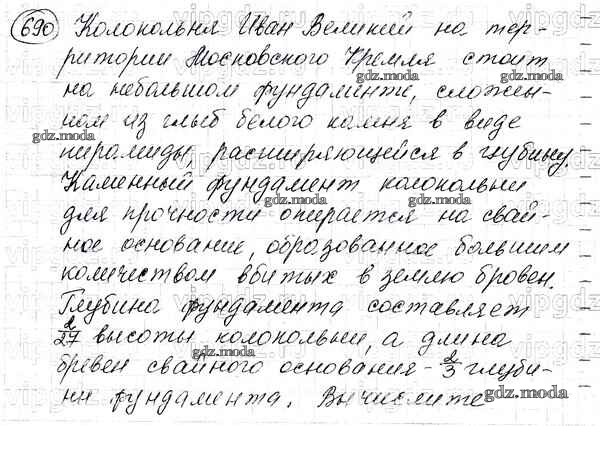 690 Колокольня Иван Великий на тер-
ритории Московского Кремля стоит
на небольшом фундаменте, сложен-
ном из глыб белого камня в виде
пирамиды, расширяющейся в глубину.
Каменный фундамент колокольни
для прочности опирается на свай-
ное основание, образованное большим
количеством вбитых в землю бровен.
Глубина фундамента составляет
2/27 высоты колокольни, а длина
бревен свайного основания - 2/3 глуби-
ни фундамента. Вычислите